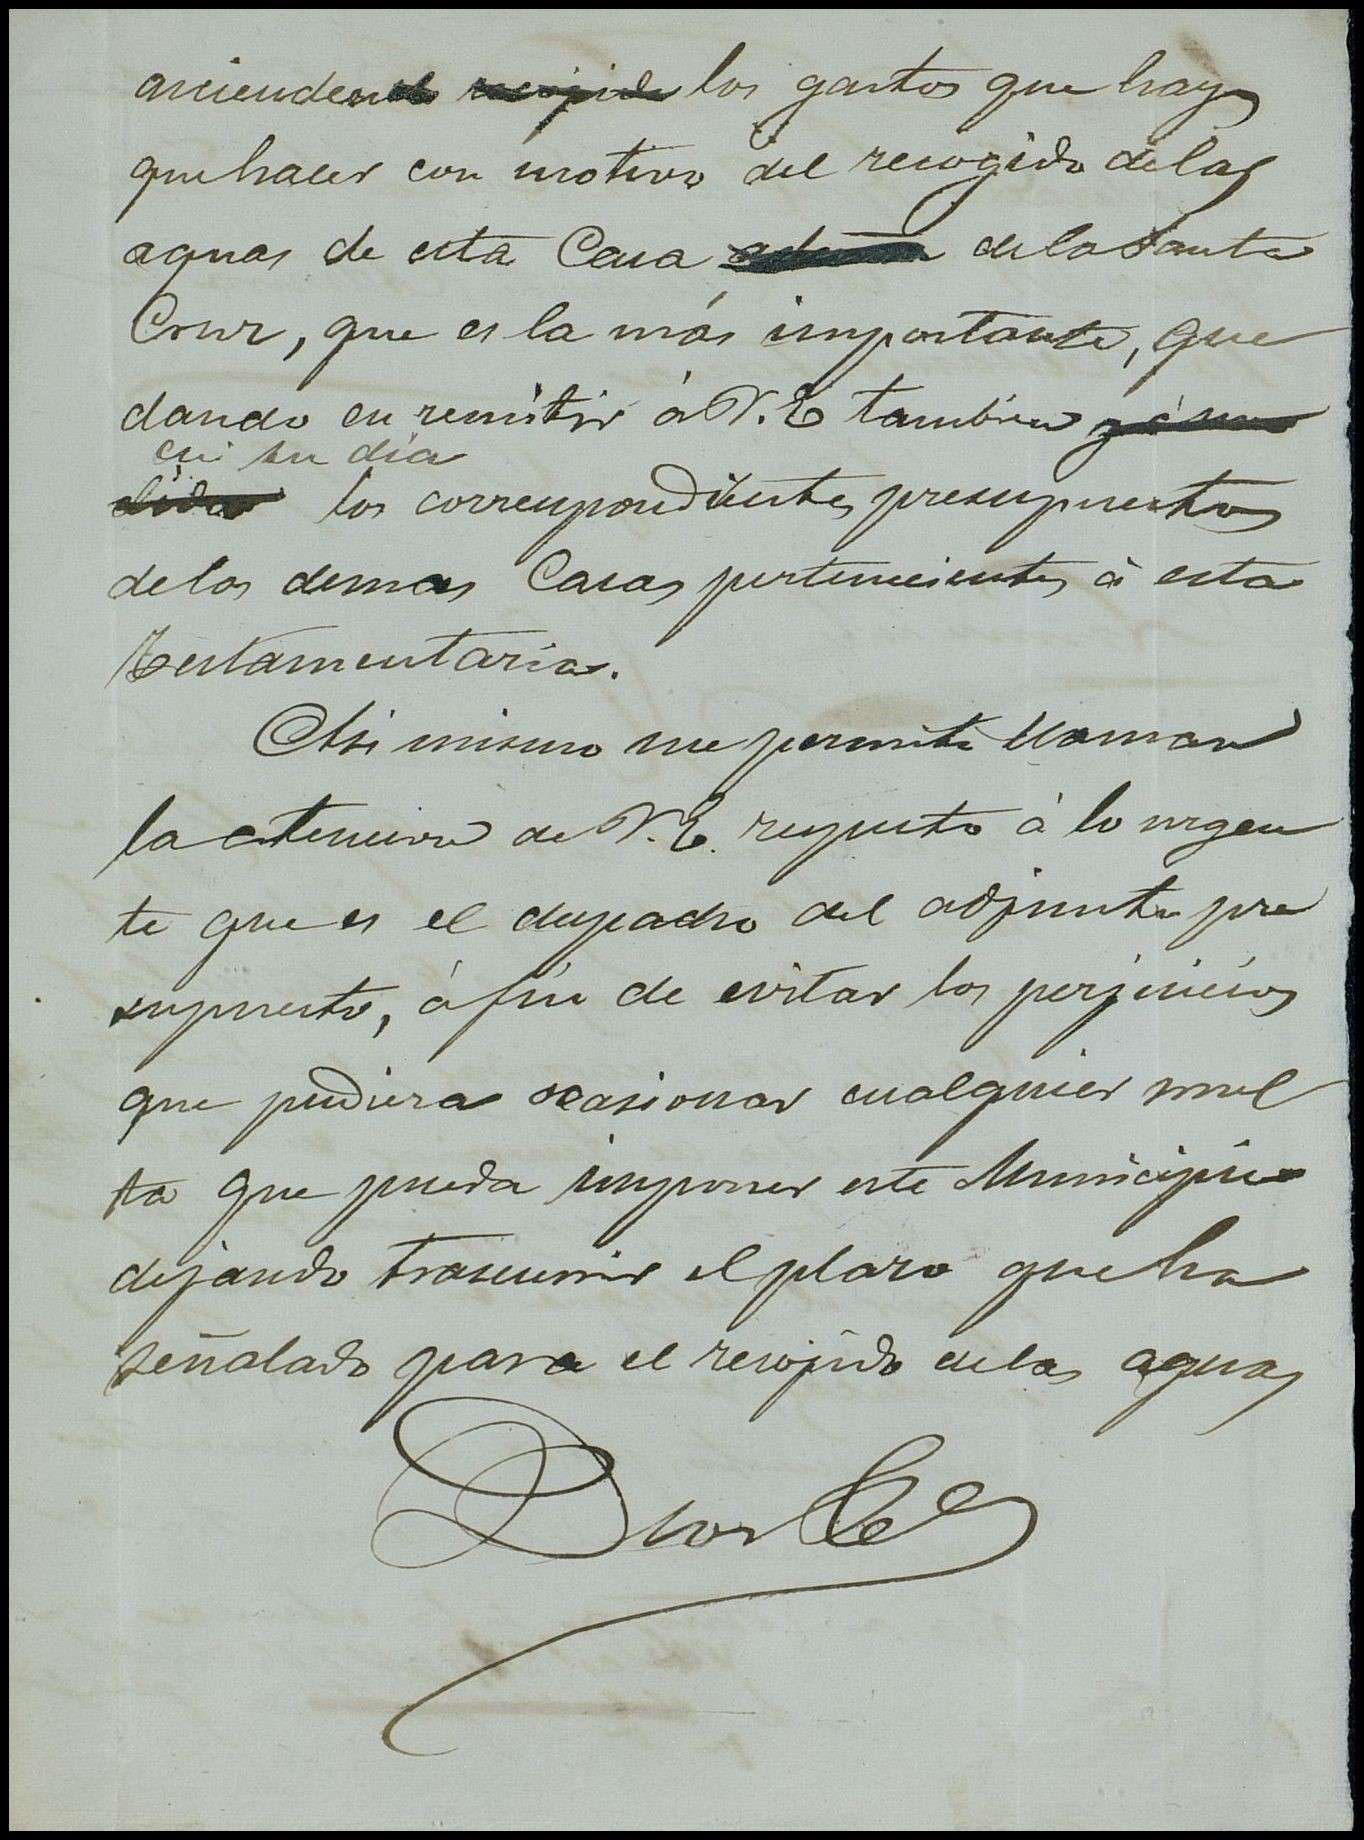 ascienden los gastos que hay
que hacer con motivo del recogido de las
aguas de esta Casa de la Santa
Cruz, que es la más importante, que
dando en remitir á V.E. tambien
en su dia
los correspondientes presupuestos
de las demas Casas pertenecientes á esta
testamentaria.
Asi mismo me permito llamar
la atencion de V.E. respecto á lo urgen
te que es el despacho del adjunto pre
supuesto, á fin de evitar los perjuicios
que pudiera ocasionar cualquier mul
ta que pueda imponer este Municipio
dejando trascurrir el plazo que ha
señalado para el recojido de las aguas
Dios &